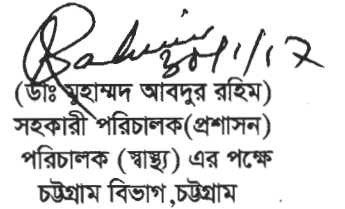 ৩০/১/১৭
(ডাঃ মুহাম্মদ আবদুর রহিম)
সহকারী পরিচালক(প্রশাসন)
পরিচালক (স্বাস্থ্য) এর পক্ষে
চট্টগ্রাম বিভাগ,চট্টগ্রাম